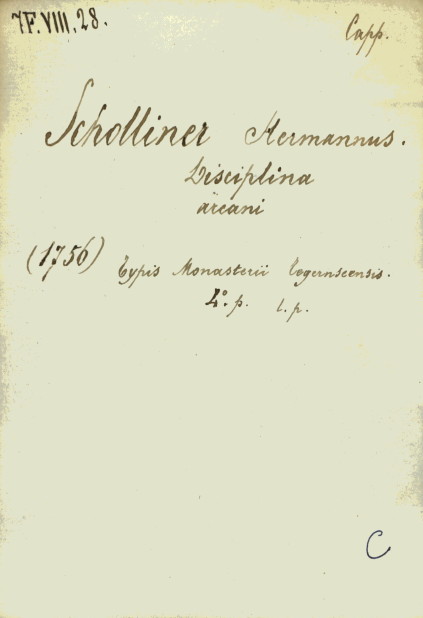 7F.VIII.28.
Capp.
Scholliner Hermannus.
Disciplina
arcani
(1756) Typis Monasterii Tegernseensis.
4º. p. l. p.
C